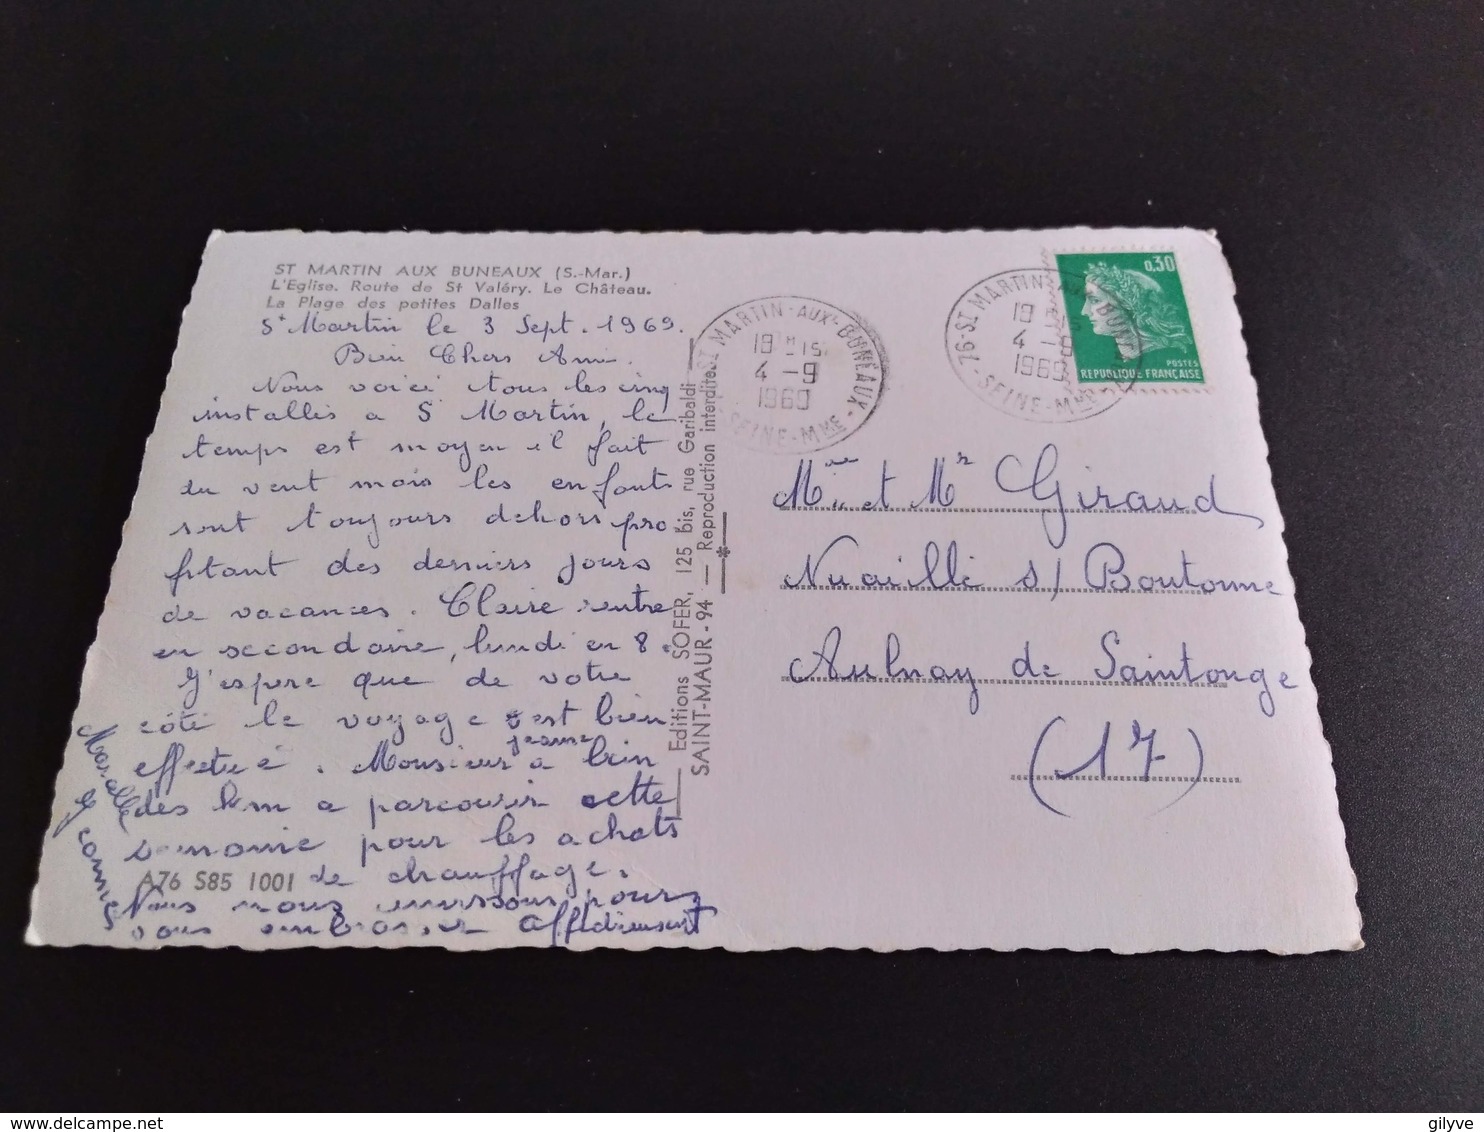 ST MARTIN AUX BUNEAUX (S.-Mar.)
L'Eglise. Route de St Valéry. Le Château.
La Plage des petites Dalles
St Martin le 3 Sept. 1969.
Bien Chers Ami.
Nous voici tous les cinq
installés a St Martin, le
temps est moyen il fait
du vent mais les enfants
sont toujours dehors pro
fitant des derniers jours
de vacances. Claire rentre
en secondaire, lundi en 8.
J'espère que de votre
côté le voyage s'est bien
effectué. Monsieur jeanne a bien
des km a parcourir cette
semaine pour les achats
de chauffage.
A76 S85 1001
Nous nous pour
vous embrasser affectueusement
Marcelle
Editions SOFER, 125 bis, rue Garibaldi
SAINT-MAUR - 94 — Reproduction interdite
76-ST MARTIN-AUX-BUNEAUX
19 H 15
4 - 9
1969
SEINE-MME
76-ST MARTIN-AUX-BUNEAUX
19
4 - 9
1969
SEINE-MME
0,30
POSTES
REPUBLIQUE FRANÇAISE
Mme et Mr Giraud
Nuaillé s/ Boutonne
Aulnay de Saintonge
(17)
gilyve